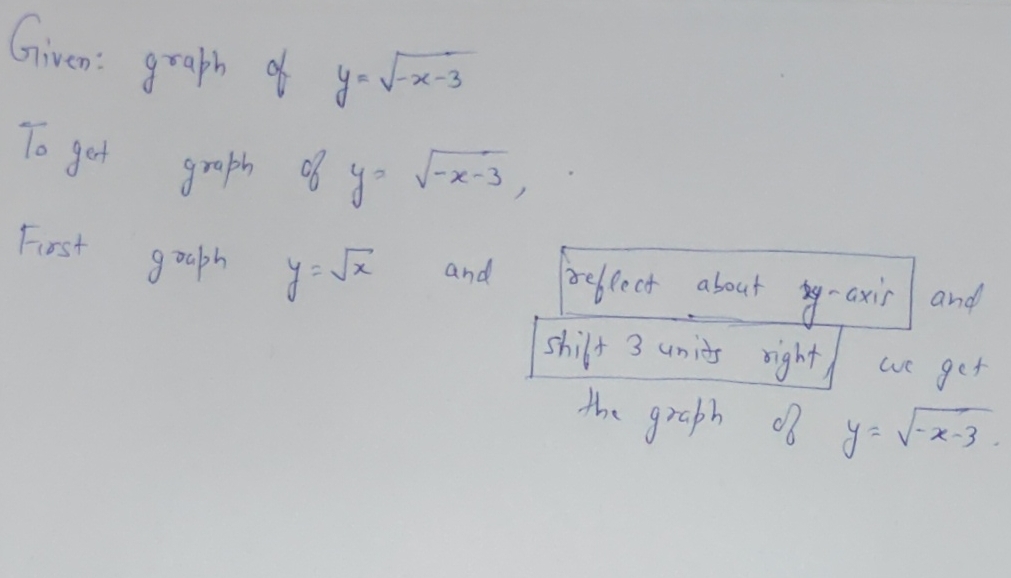 Given: graph of y=√-x-3
To get graph of y= √-x-3,
First graph y=√x and reflect about y-axis and
shift 3 units right, we get
the graph of y= √-x-3.